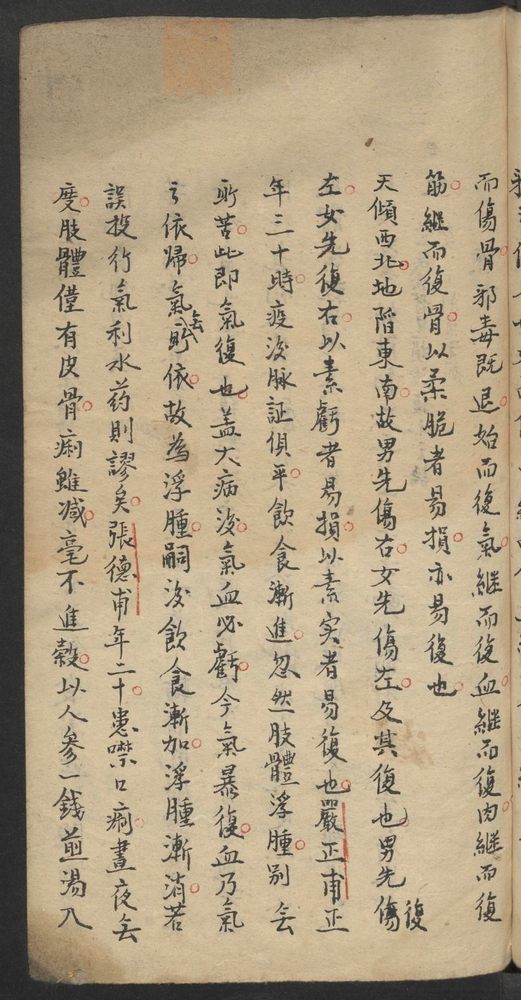 而傷骨邪毒既退始而復氣継而復血継而復肉継而復
筋継而復骨以柔脆者易損亦易復也
天傾西北地陷東南故男先傷右女先傷左及其復也男先傷復
左女先復右以素虧者易損以素实者易復也嚴正甫正
年三十時疫後脉証俱平飲食漸進忽然肢體浮腫別无
所苦此即氣復也盖大病後氣血必虧今氣暴復血乃氣
之依歸氣无所依故為浮腫嗣後飲食漸加浮腫漸消若
誤投行氣利水药則謬矣張德甫年二十患噤口痢晝夜无
度肢體僅有皮骨痢雖减毫不進穀以人參一錢煎湯入